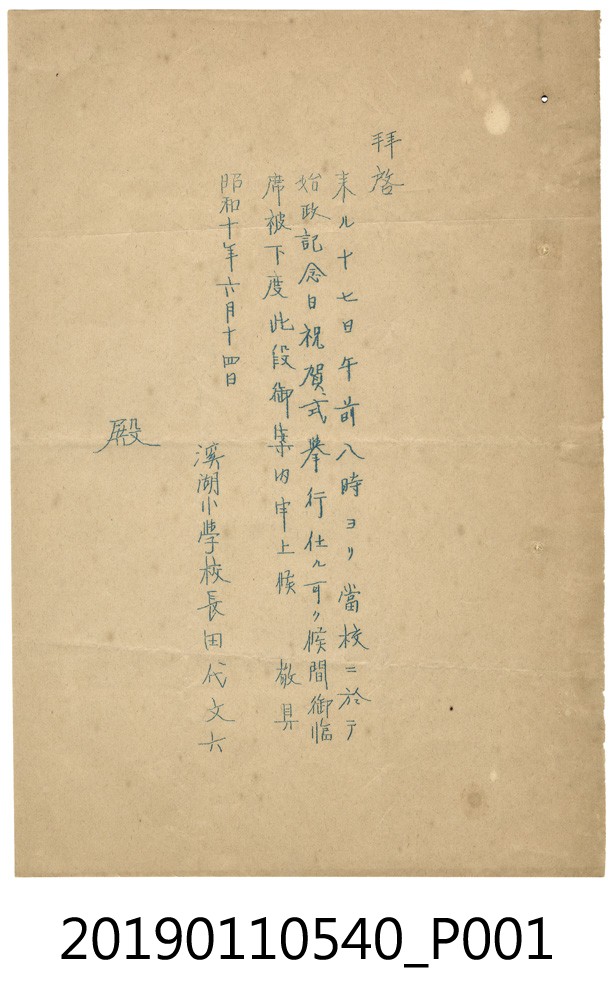 拝啓
来ル十七日午前八時ヨリ當校ニ於テ
始政記念日祝賀式擧行仕ル可ク候間御臨
席被下度此段御案内申上候　敬具
昭和十年六月十四日
溪湖小學校長田代文六
殿
20190110540_P001